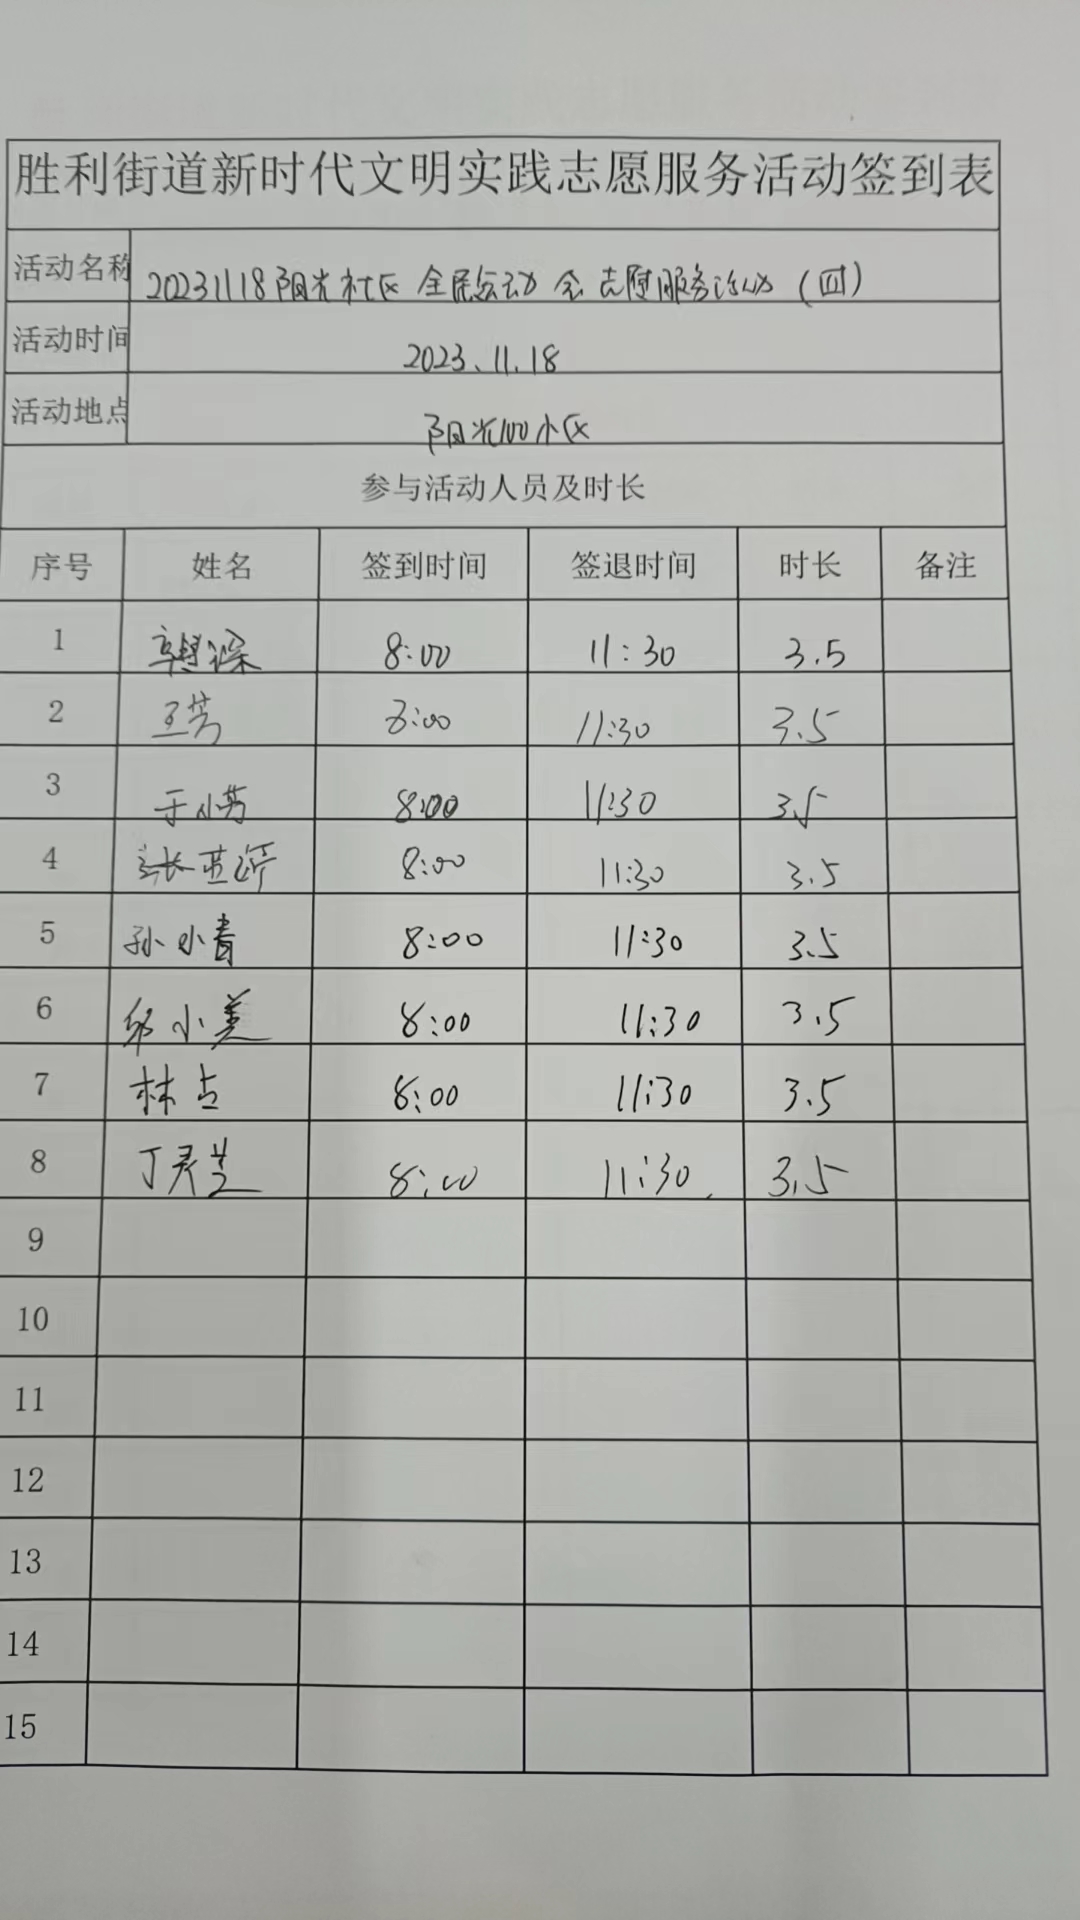 胜利街道新时代文明实践志愿服务活动签到表
活动名称 20231118阳光社区全民运动会志愿服务活动(四)
活动时间 2023.11.18
活动地点 阳光100小区
参与活动人员及时长
序号 姓名 签到时间 签退时间 时长 备注
1 8:00 11:30 3.5
2 王芳 8:00 11:30 3.5
3 于小芳 8:00 11:30 3.5
4 8:00 11:30 3.5
5 孙小青 8:00 11:30 3.5
6 邹小美 8:00 11:30 3.5
7 林 8:00 11:30 3.5
8 丁灵芝 8:00 11:30 3.5
9
10
11
12
13
14
15